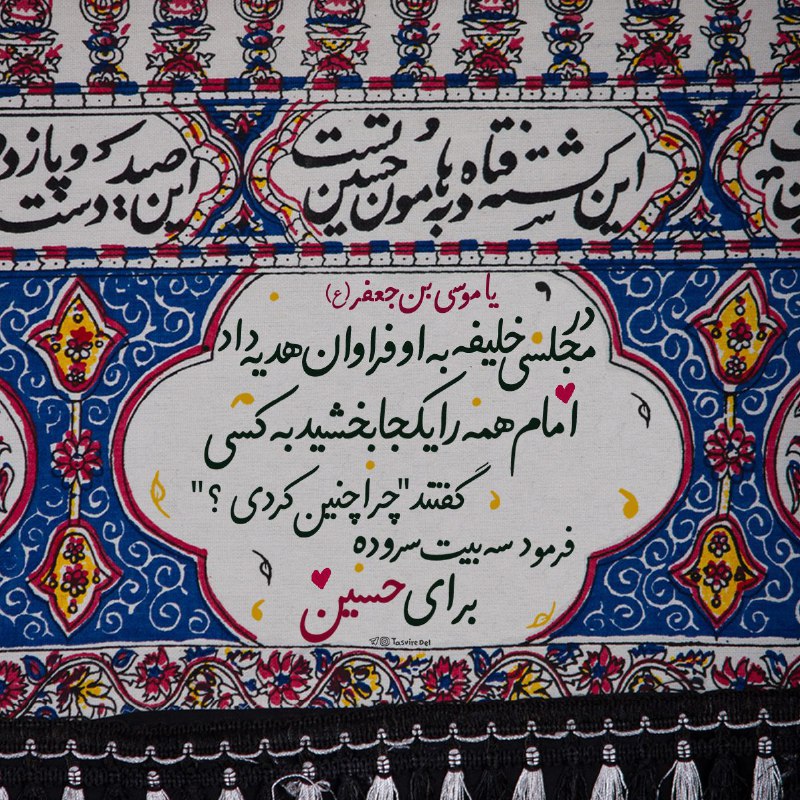 این کشته فتاده به هامون حسین توست
وین صید دست و پا زده
یا موسی بن جعفر (ع)
در
مجلسی خلیفه به او فراوان هدیه داد
امام همه را یکجا بخشید به کسی
گفتند "چرا چنین کردی ؟"
فرمود سه بیت سروده
برای حسین
Tasvire Del